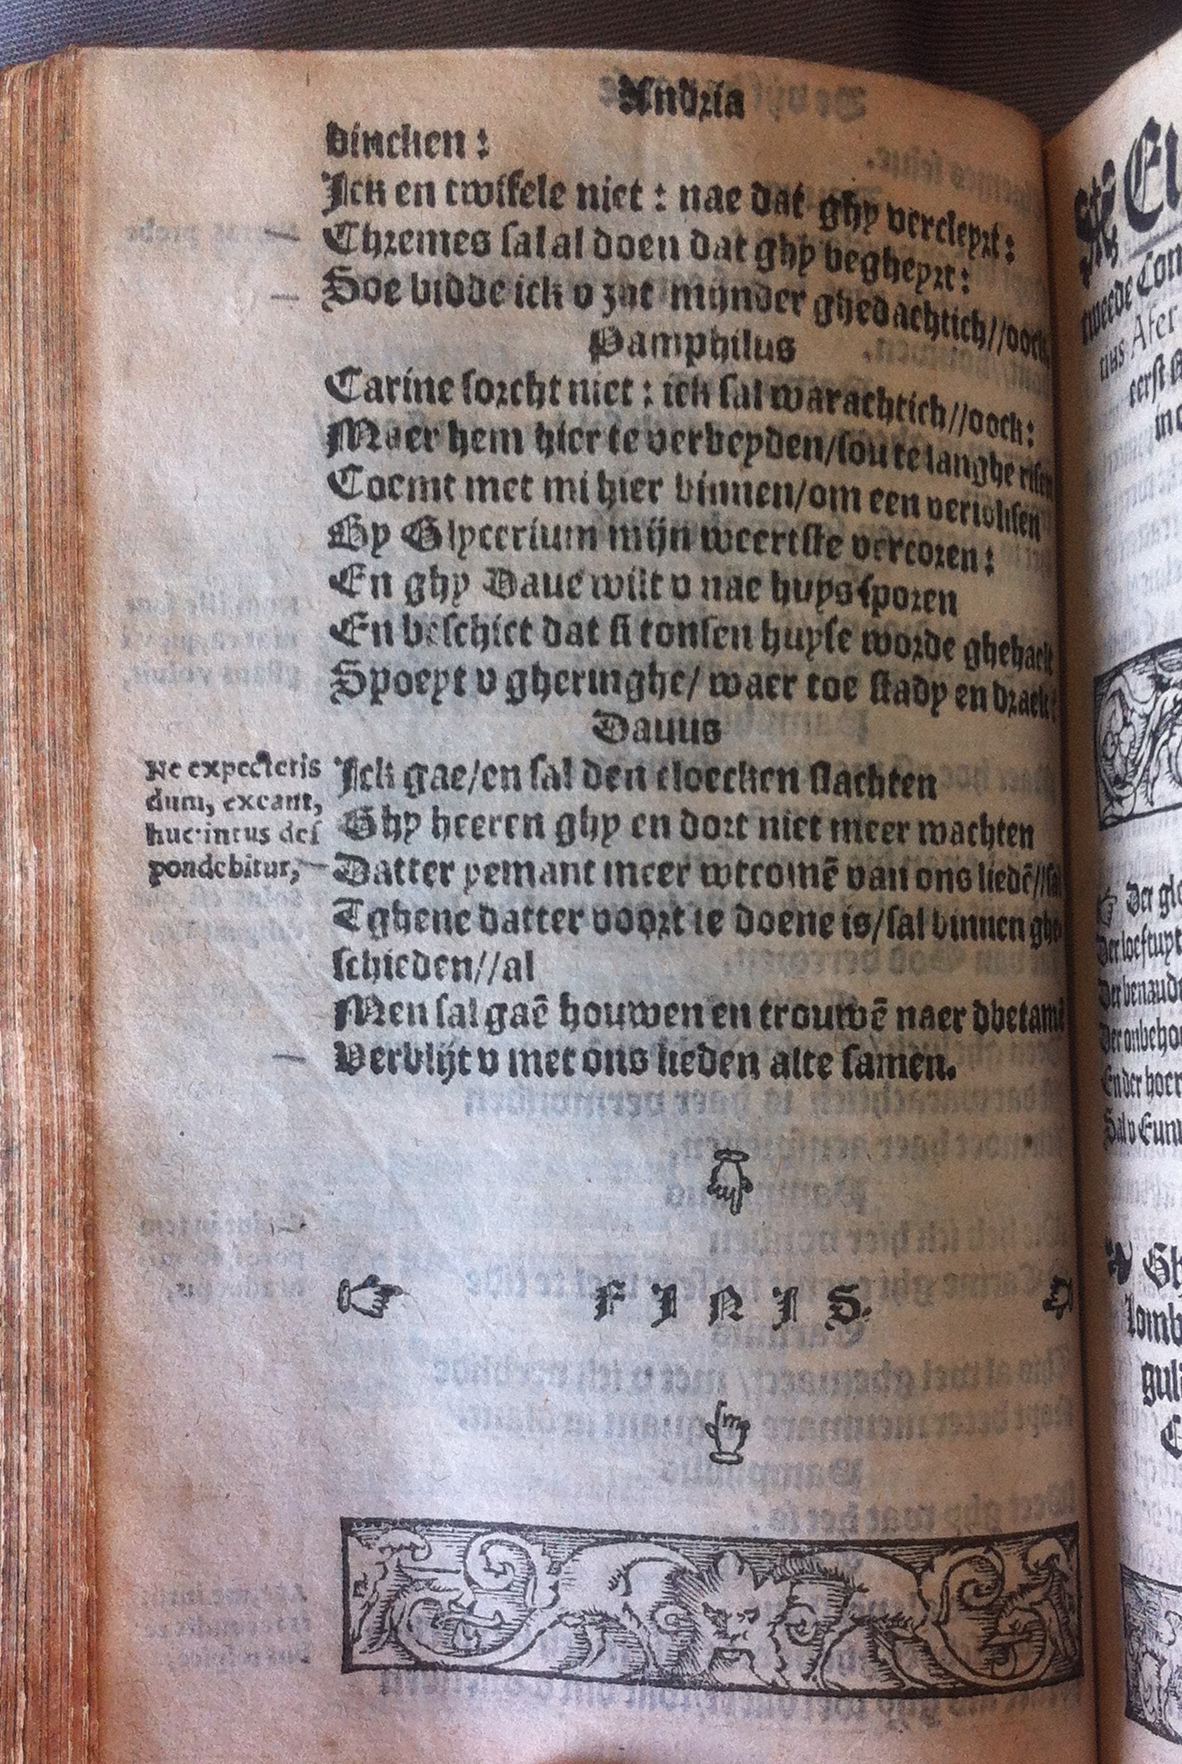 Andria
vincken :
Ick en twifele niet : nae dat ghy vercleyrt :
Chremes sal al doen dat ghy begheyrt :
Soe bidde ick v zyt mynder ghedachtich//oock,
Pamphilus
Carine sorcht niet : ick sal warachtich//oock :
Maer hem hier te verbeyden/sou te langhe risen
Coemt met mi hier binnen/om een veriolisen
By Glycerium mijn weertste vercoren :
En ghy Daue wilt v nae huys sporen
En beschict dat si tonsen huyse worde ghehaelt
Spoeyt v gheringhe/ waer toe stady en draelt :
Dauus
Ick gae/en sal den cloecken slachten
Ghy heeren ghy en dort niet meer wachten
Datter yemant meer wtcomē van ons liedē//sal
Tghene datter voort te doene is/sal binnen ghe
schieden//al
Men sal gaē houwen en trouwē naer dbetamē
Verblijt v met ons lieden alte samen.
Ne expectetis
dum, exeant,
huc: intus des
pondebitur,
F I N I S.
El
tweede Com
tius Afer
eerst
Der glo
Der loeftuyt
Der benaude
Der onbeho
En der hoer
Sal v Eunu
Gh
Lomb
gul